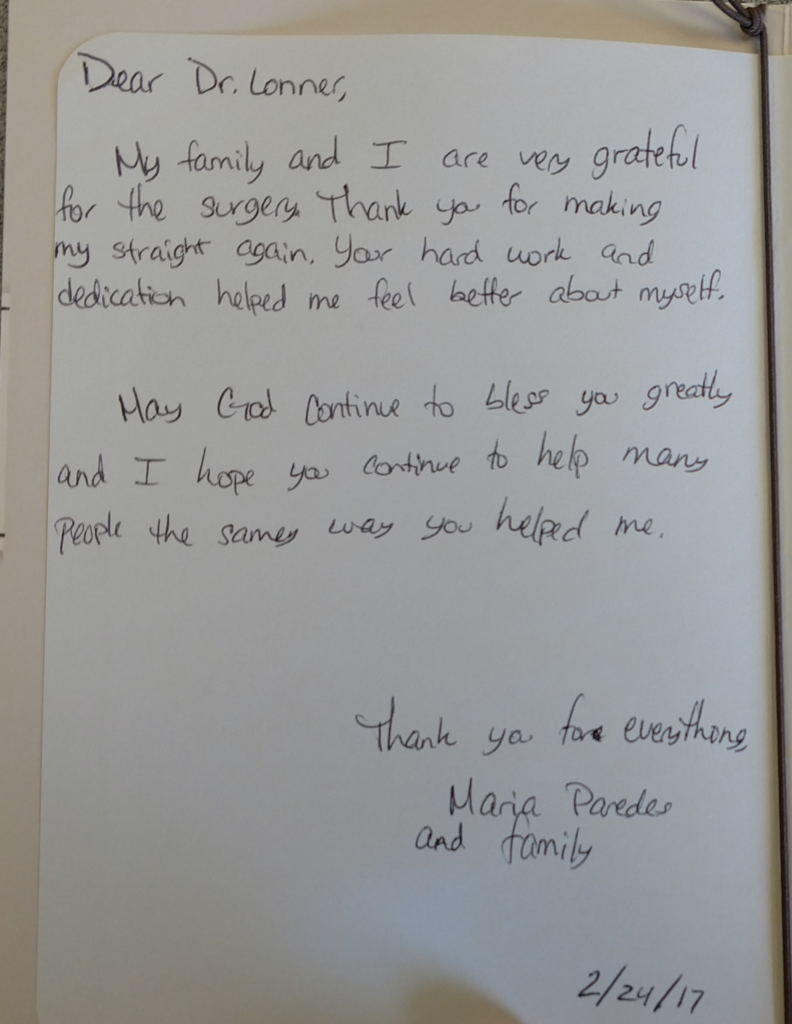 Dear Dr. Lonner,
My family and I are very grateful
for the surgery. Thank you for making
my straight again. Your hard work and
dedication helped me feel better about myself.
May God continue to bless you greatly
and I hope you continue to help many
people the samey way you helped me.
Thank you for everything,
Maria Paredes
and family
2/24/17